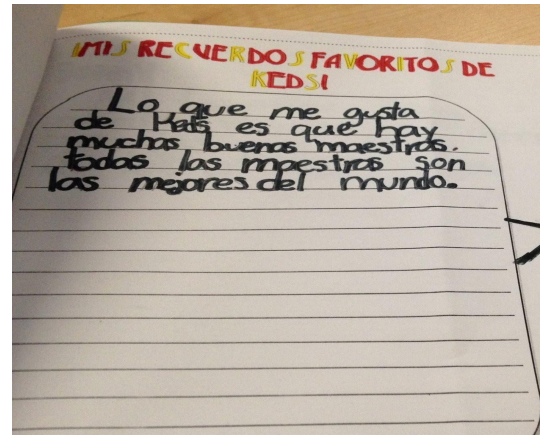 ¡MIS RECUERDOS FAVORITOS DE
KEDS!
Lo que me gusta
de Kats es que hay
muchas buenas maestras.
todas las maestras son
las mejores del mundo.